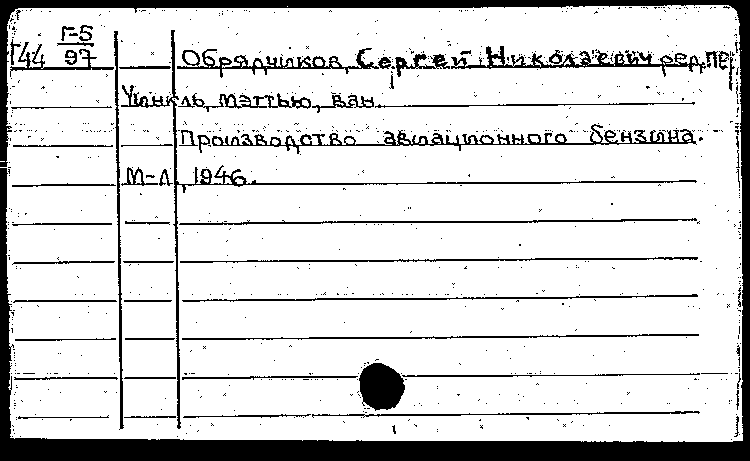 Г44 Г-5/97 Обрядчиков, Сергей Николаевич ред, пер
Уинкль, Мэттью, ван.
Производство авиационного бензина.
М-Л, 1946.